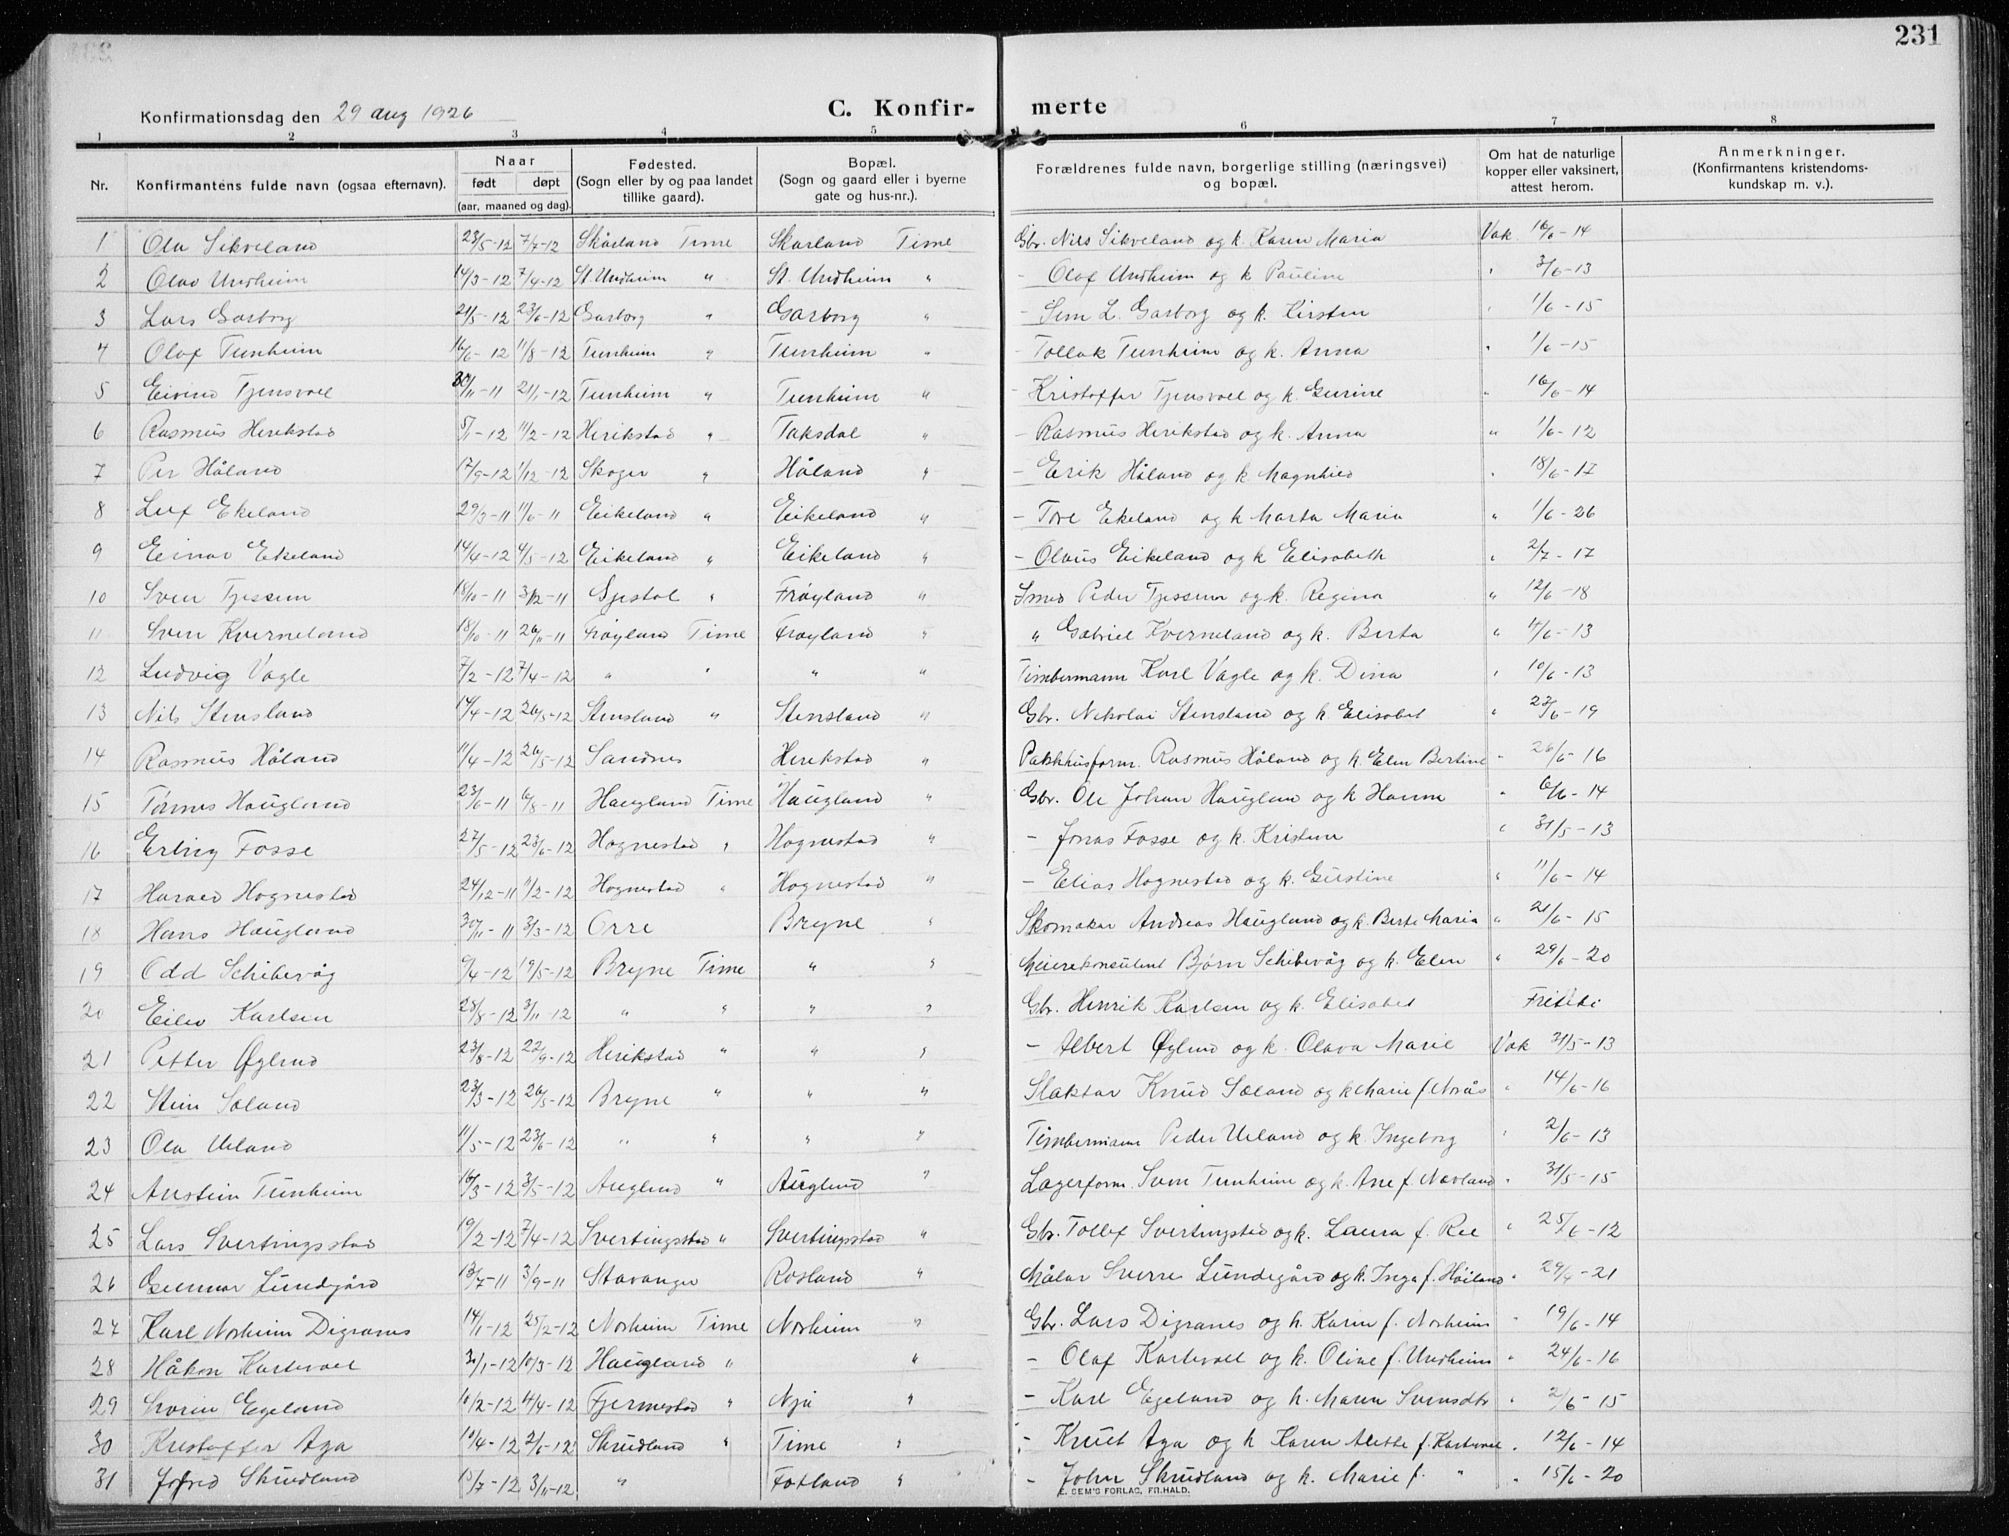 231
Konfirmationsdag den 29 aug 1926
C. Konfir- merte
1 2 3 4 5 6 7 8
Nr. Konfirmantens fulde navn (ogsaa efternavn). Naar født døpt (aar, maaned og dag). Fødested. (Sogn eller by og paa landet tillike gaard). Bopæl. (Sogn og gaard eller i byerne gate og hus-nr.). Forældrenes fulde navn, borgerlige stilling (næringsvei) og bopæl. Om hat de naturlige kopper eller vaksinert, attest herom. Anmerkninger. (Konfirmantens kristendoms- kundskap m. v.).
1 Ola Sikveland 23/5-12 7/7-12 Skårland Time Skarland Time Gbr. Nils Sikveland og k. Karen Maria Vak 16/6-14
2 Olav Undheim 14/3-12 7/4-12 St. Undheim " St. Undheim " - Olaf Undheim og k Pauline " 3/6-13
3 Lars Garborg 21/5-12 23/6-12 Garborg " Garborg " - Sem L. Garborg og k. Kirsten " 1/6-15
4 Olaf Tunheim 16/6-12 11/8-12 Tunheim " Tunheim " - Tollak Tunheim og k. Anna " 1/6-15
5 Eivind Tjensvoll 30/11-11 21/1-12 Tunheim " Tunheim " - Kristoffer Tjensvoll og k. Gurine " 16/6-14
6 Rasmus Herikstad 5/1-12 11/2-12 Herikstad " Taksdal " - Rasmus Herikstad og k. Anna " 1/6-12
7 Per Håland 17/9-12 1/12-12 Skoger " Håland " - Erik Håland og k. Magnhild " 18/6-17
8 Leif Ekeland 29/3-11 11/6-11 Eikeland " Eikeland " - Tore Ekeland og k Marta Maria " 1/6-26
9 Einar Ekeland 14/4-12 4/5-12 Eikeland " Eikeland " - Olaus Eikeland og k Elisabeth " 2/7-17
10 Sven Tjessem 18/10-11 3/12-11 Gjestal " Frøyland " Smed Peder Tjessem og k. Regina " 12/6-18
11 Sven Kverneland 18/10-11 26/11-11 Frøyland Time Frøyland " " Gabriel Kverneland og k. Berta " 4/6-13
12 Ludvig Vagle 7/2-12 7/4-12 " " " " Timbermann Karl Vagle og k. Dina " 10/6-13
13 Nils Stensland 14/4-12 26/5-12 Stensland " Stensland " Gbr. Nikolai Stensland og k. Elisabet " 23/6-19
14 Rasmus Håland 11/4-12 26/5-12 Sandnes Herikstad " Pakkhusform. Rasmus Håland og k. Elen Bertine " 26/6-16
15 Tønnes Haugland 23/6-11 6/8-11 Haugland Time Haugland " Gbr. Ole Johan Haugland og k Hanna " 6/6-14
16 Erling Fosse 27/5-12 23/6-12 Hognestad " Hognestad " - Jonas Fosse og k. Kristine " 31/5-13
17 Harald Hognestad 24/12-11 11/2-12 Hognestad " Hognestad " - Elias Hognestad og k. Gustine " 11/6-14
18 Hans Haugland 30/11-11 3/3-12 Orre Bryne " Skomakar Andreas Haugland og k. Berte Maria " 21/6-15
19 Odd Schibevåg 9/4-12 19/5-12 Bryne Time " " Meierikonsulent Bjørn Schibevåg og k. Elen " 29/6-20
20 Eilev Karlsen 28/8-12 3/11-12 " " " " Gbr. Henrik Karlsen og k. Elisabet
21 Petter Øglend 23/8-12 22/9-12 Herikstad " " " - Albert Øglend og k. Olava Marie Vak 31/5-13
22 Stein Sæland 23/3-12 26/5-12 Bryne " " " Slaktar Knud Sæland og k Marie f. Norås " 14/6-16
23 Ola Ueland 11/5-12 23/6-12 " " " " Timbermann Peder Ueland og k. Ingeborg " 2/6-13
24 Austein Tunheim 16/3-12 3/5-12 Auglend " Auglend " Lagerform. Sven Tunheim og k. Ane f. Nevland " 31/5-15
25 Lars Svertingsstad 19/2-12 7/4-12 Svertingsstad " Svertingsstad " Gbr. Tollef Svertingstad og k. Laura f. Ree " 25/6-12
26 Gunnar Lundegård 13/7-11 3/9-11 Stavanger Rosland " Målar Sverre Lundegård og k. Inga f. Høiland " 29/4-21
27 Karl Norheim Digranes 14/1-12 25/2-12 Norheim Time Norheim " Gbr. Lars Digranes og k. Karen f. Norheim " 19/6-14
28 Håkon Kartevoll 30/1-12 10/3-12 Haugland " " - Olaf Kartevoll og k. Oline f. Undheim " 24/6-16
29 Søren Egeland 10/2-12 14/4-12 Fjermestad " Njå " - Karl Egeland og k. Maren Svensdtr " 2/6-15
30 Kristoffer Aga 10/4-12 2/6-12 Skrudland " Time " - Knut Aga og k Karen Alette f. Kartevoll " 12/6-14
31 Jofred Skrudland 15/7-12 3/11-12 " Fotland " - John Skrudland og k. Marie f. " " 15/6-20
E. SEM'S FORLAG, FR.HALD.